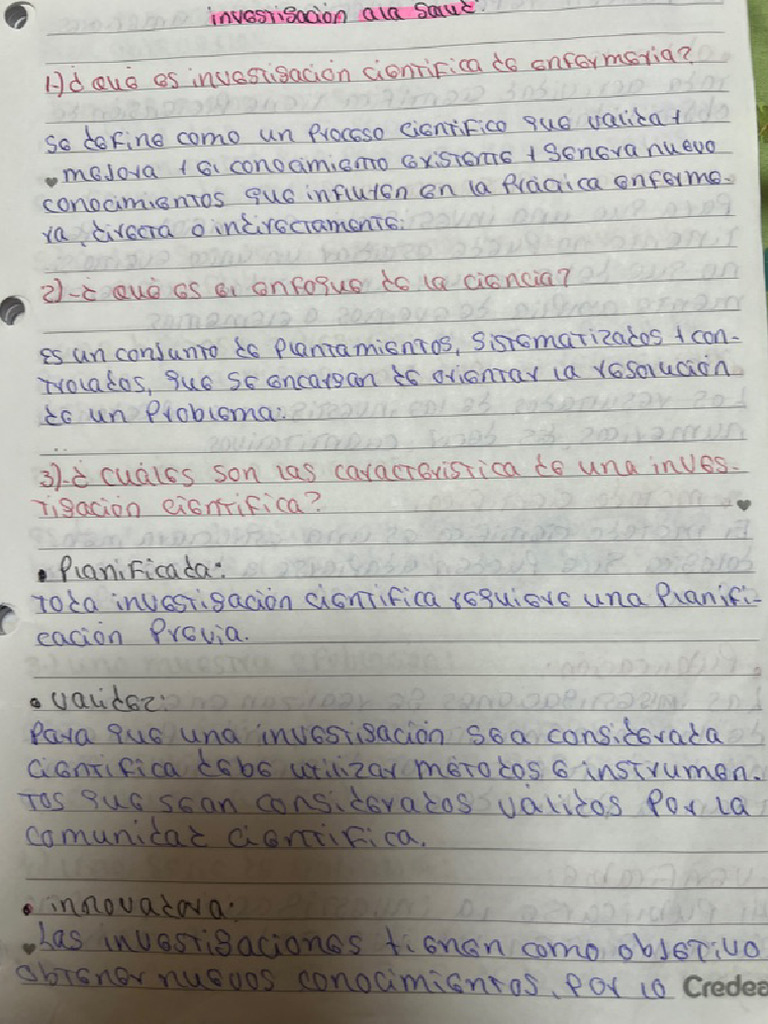 investigación a la salud.
1-) ¿ qué es investigación científica de enfermeria?
se define como un proceso científico que valida y
mejora y el conocimiento existente y genera nuevo
conocimientos que influyen en la práctica enferme-
ra, directa o indirectamente.
2)-¿ qué es el enfoque de la ciencia?
es un conjunto de plantamientos, sistematizados y con-
trolados, que se encargan de orientar la resolución
de un problema.
3)-¿ cuáles son las característica de una inves-
tigación científica?
• Planificada:
toda investigación científica requiere una planifi-
cación previa.
• validez:
Para que una investigación sea considerada
científica debe utilizar métodos e instrumen-
tos que sean considerados válidos por la
comunidad científica.
• innovadora:
Las investigaciones tienen como objetivo
obtener nuevos conocimientos, por lo
Credea